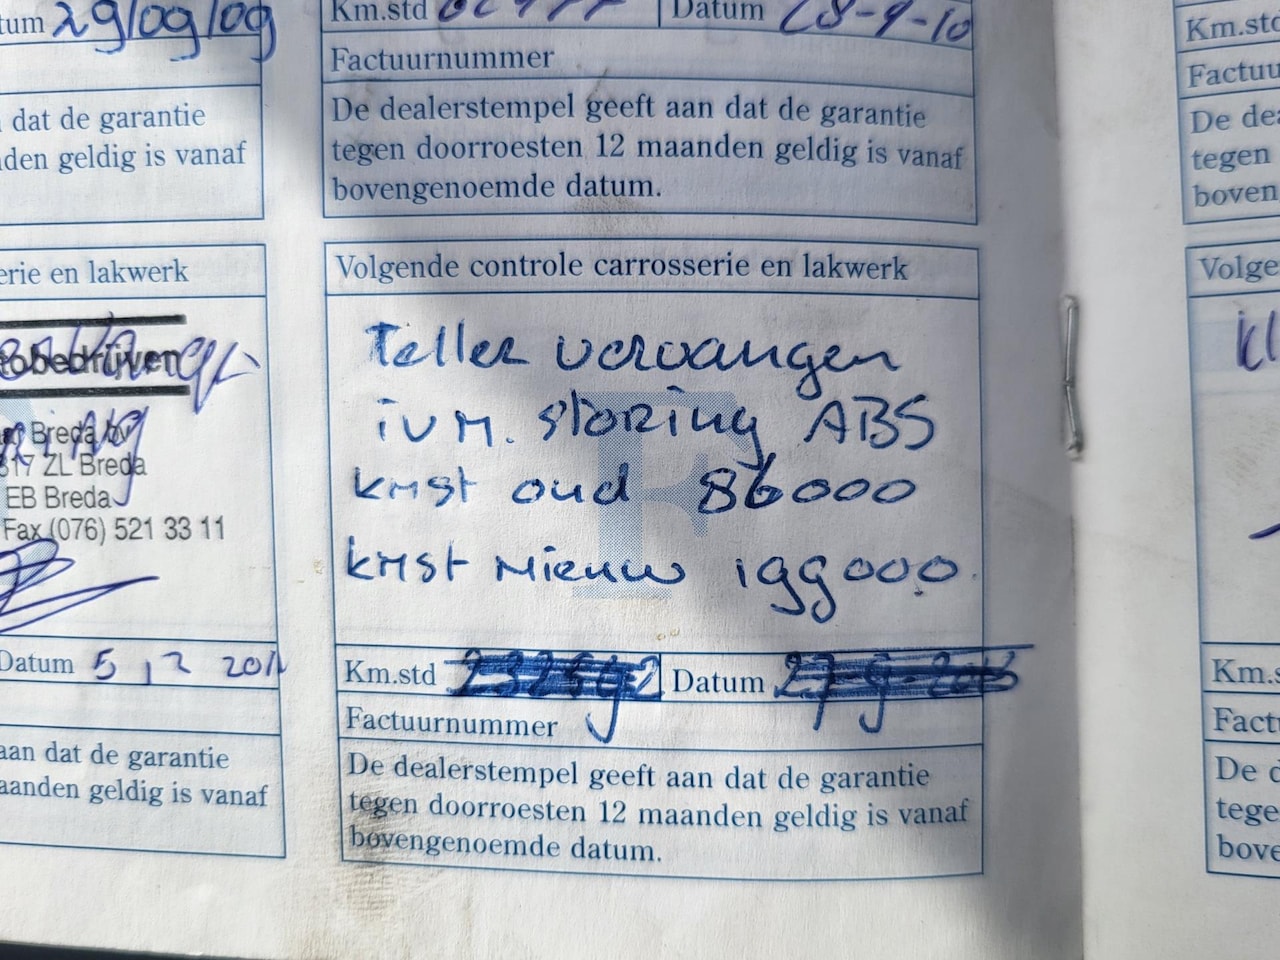 tum 29/09/09
Km.std
Datum 28-9-10
Km.std
Factuurnummer
Factuu
De dealerstempel geeft aan dat de garantie
tegen doorroesten 12 maanden geldig is vanaf
bovengenoemde datum.
dat de garantie
den geldig is vanaf
De dea
tegen
boven
erie en lakwerk
Volgende controle carrosserie en lakwerk
Volge
tobedrijven
Breda bv
317 ZL Breda
EB Breda
Fax (076) 521 33 11
Teller vervangen
ivm. storing ABS
kmst oud 86000
kmst nieuw 199000
Kl
Datum 5 12 2011
Km.std
Datum
Factuurnummer
Km.s
Fact
aan dat de garantie
aanden geldig is vanaf
De dealerstempel geeft aan dat de garantie
tegen doorroesten 12 maanden geldig is vanaf
bovengenoemde datum.
De d
tege
bove